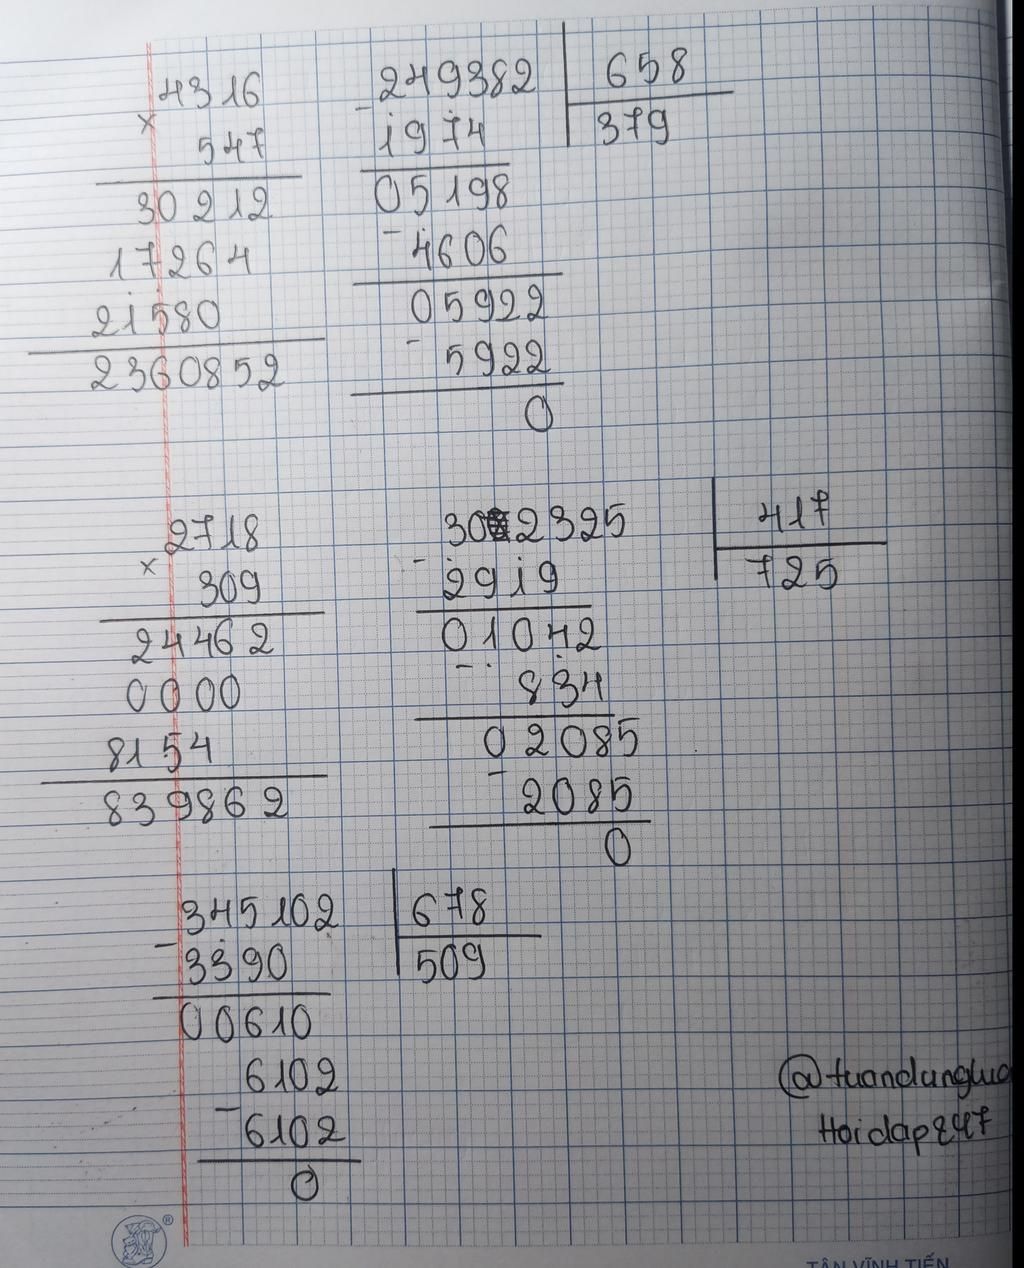 4316
×
547
30212
17264
21580
2360852
249382
658
-
1974
379
05198
-
4606
05922
-
5922
0
2718
×
309
24462
0000
8154
839862
302325
417
-
2919
725
01042
-
834
02085
-
2085
0
345102
678
-
3390
509
00610
6102
-
6102
0
Hoidap247
®
TÂN VĨNH TIẾN